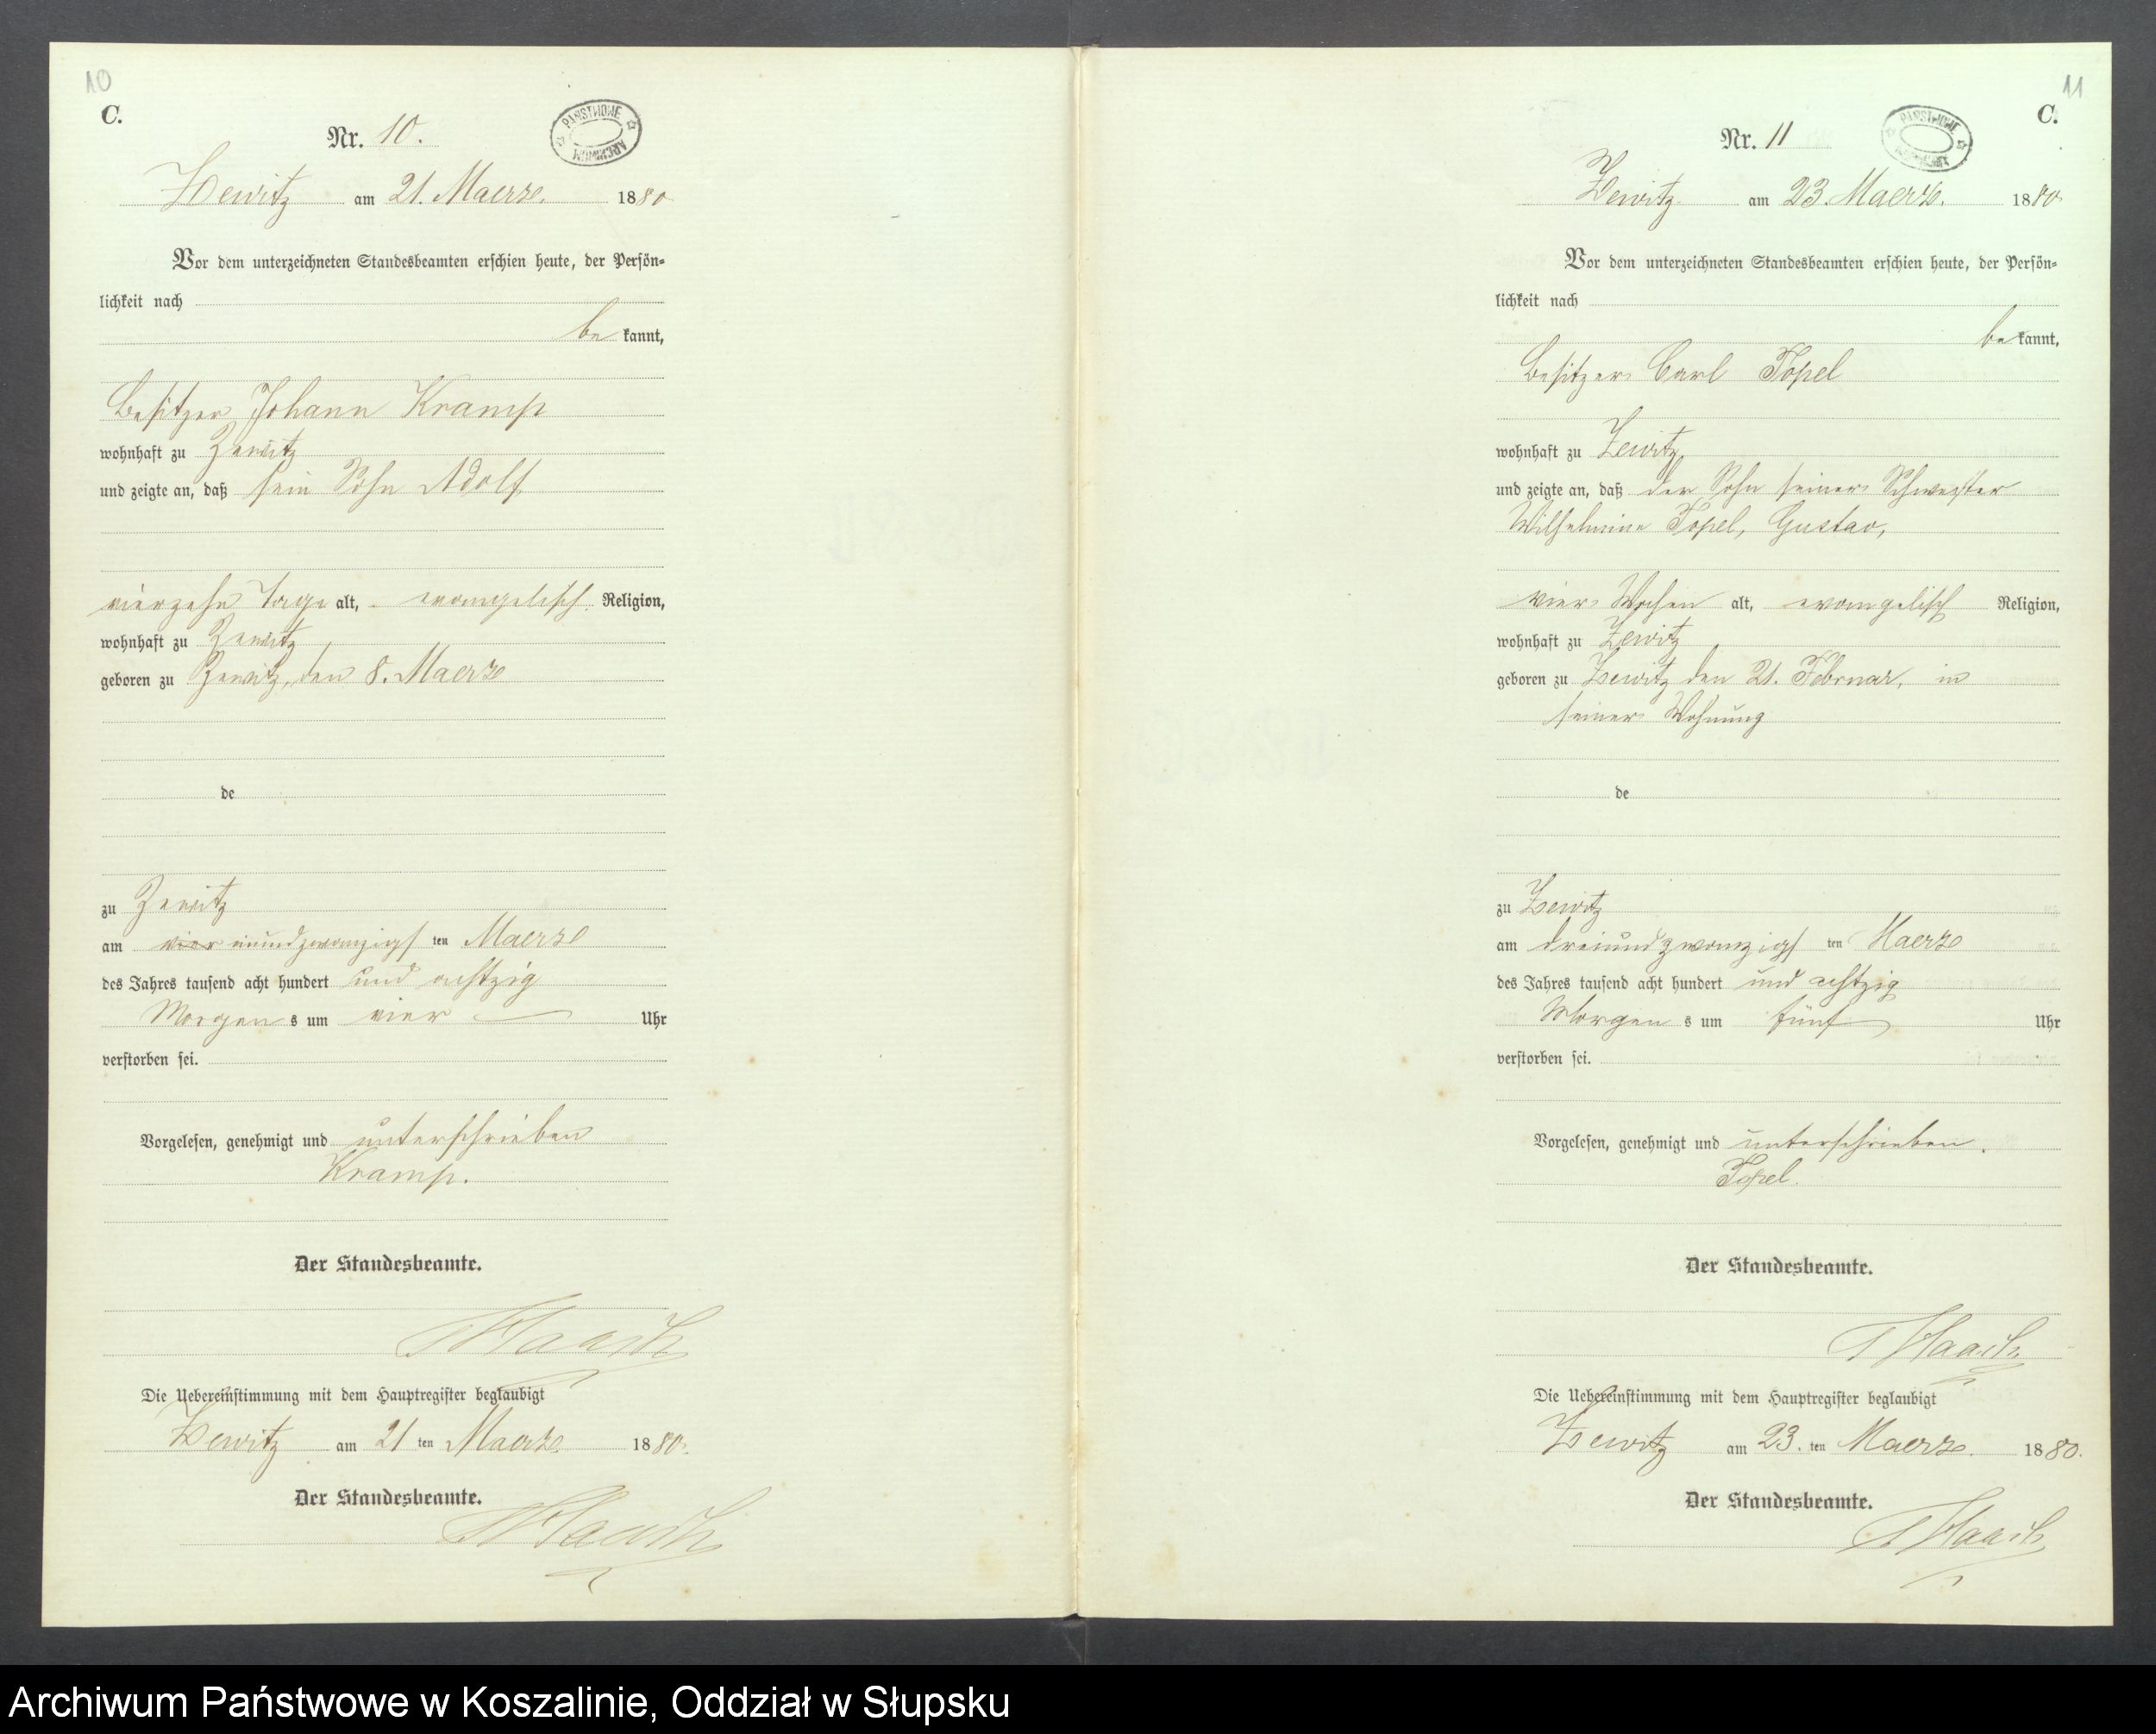 10
C.
Nr. 10.
PAŃSTWOWE ARCHIWUM
Zewitz am 21. Maerz. 1880
Vor dem unterzeichneten Standesbeamten erschien heute, der Persön-
lichkeit nach
be kannt,
Besitzer Johann Kramp
wohnhaft zu Zewitz
und zeigte an, daß sein Sohn Adolf
vierzehn Tage alt, evangelisch Religion,
wohnhaft zu Zewitz
geboren zu Zewitz, den 8. Maerz
de
zu Zewitz
am vier einundzwanzigs ten Maerz
des Jahres tausend acht hundert und achtzig
Morgen s um vier Uhr
verstorben sei.
Vorgelesen, genehmigt und unterschrieben
Kramp.
Der Standesbeamte.
Haasch
Die Uebereinstimmung mit dem Hauptregister beglaubigt
Zewitz am 21 ten Maerz. 1880.
Der Standesbeamte.
Haasch
11
C.
Nr. 11
PAŃSTWOWE ARCHIWUM
Zewitz am 23. Maerz. 1880
Vor dem unterzeichneten Standesbeamten erschien heute, der Persön-
lichkeit nach
be kannt,
Besitzer Carl Topel
wohnhaft zu Zewitz,
und zeigte an, daß der Sohn seiner Schwester
Wilhelmine Topel, Gustav,
vier Wochen alt, evangelisch Religion,
wohnhaft zu Zewitz
geboren zu Zewitz den 21. Februar, in
seiner Wohnung
de
zu Zewitz
am dreiundzwanzigs ten Maerz
des Jahres tausend acht hundert und achtzig
Morgen s um fünf Uhr
verstorben sei.
Vorgelesen, genehmigt und unterschrieben.
Topel.
Der Standesbeamte.
Haasch
Die Uebereinstimmung mit dem Hauptregister beglaubigt
Zewitz am 23. ten Maerz. 1880.
Der Standesbeamte.
Haasch
Archiwum Państwowe w Koszalinie, Oddział w Słupsku